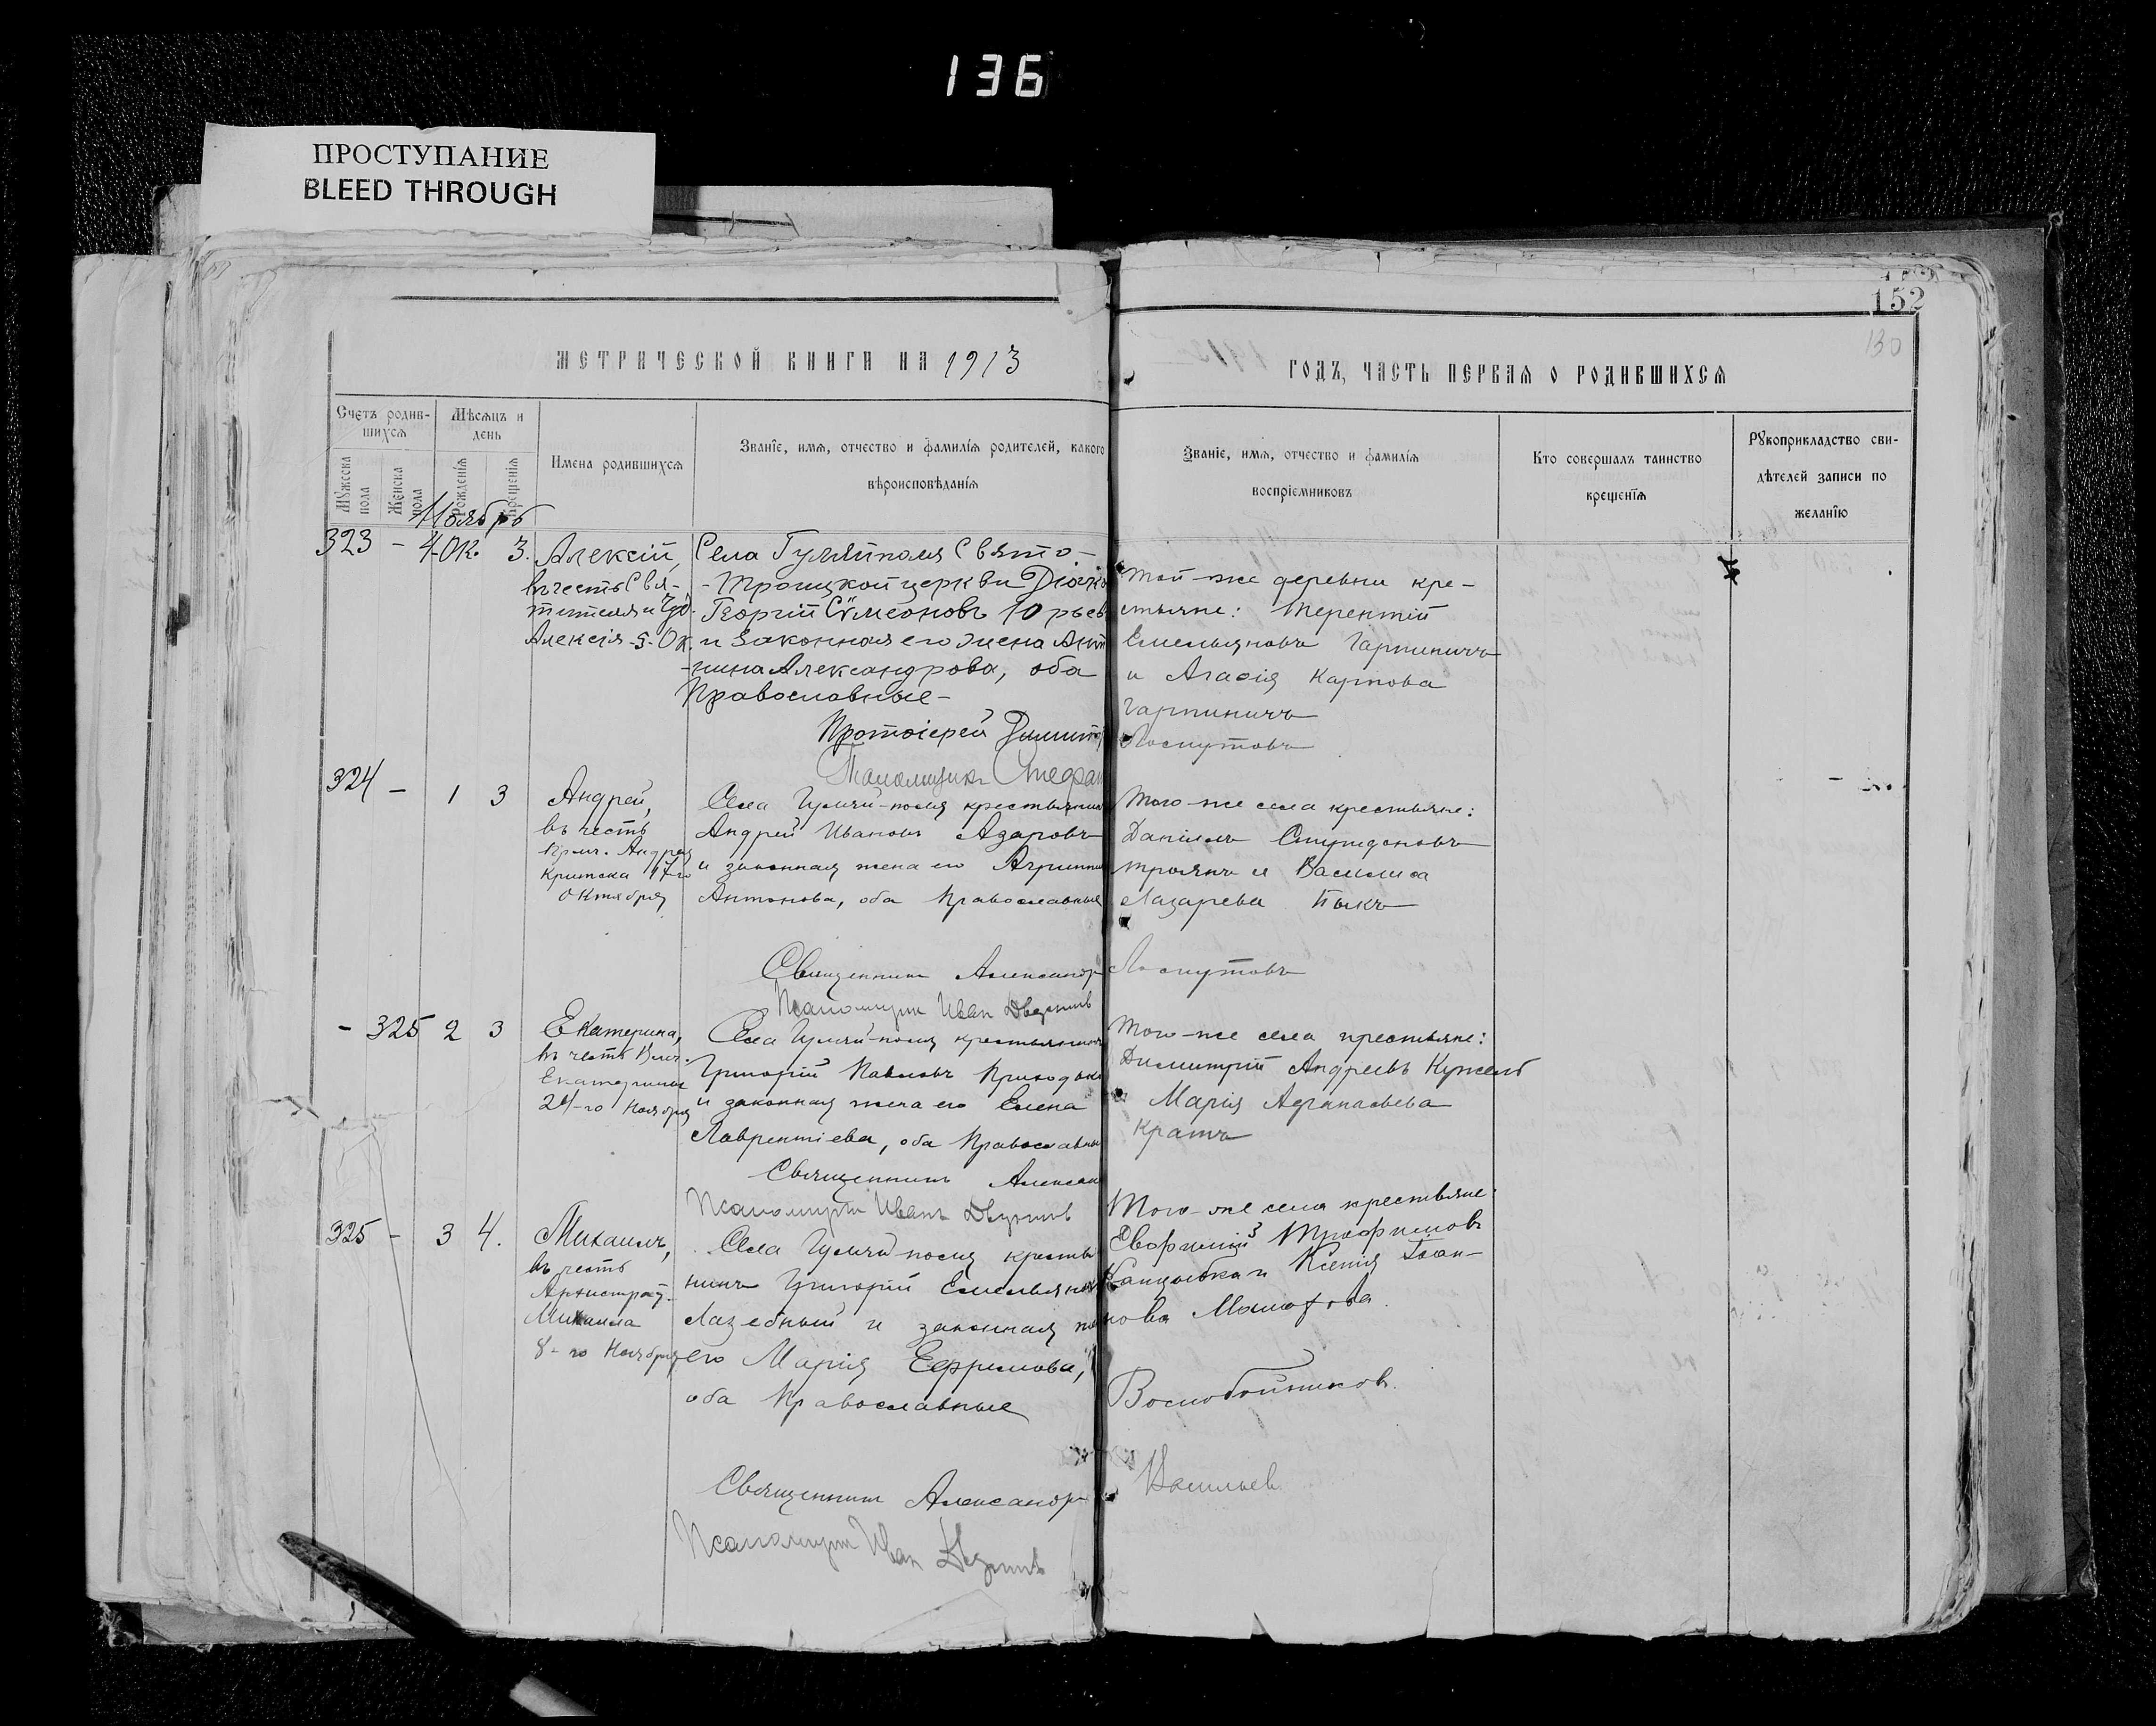 136
ПРОСТУПАНИЕ
BLEED THROUGH
152
130
МЕТРИЧЕСКОЙ КНИГИ НА 1913
ГОДЪ, ЧАСТЬ ПЕРВАЯ О РОДИВШИХСЯ
Счетъ родив-
шихся
Мужеска пола
Женска пола
Мѣсяцъ и
день
Рожденія
Крещенія
Имена родившихся
Званіе, имя, отчество и фамилія родителей, какого
вѣроисповѣданія
Званіе, имя, отчество и фамилія
воспріемниковъ
Кто совершалъ таинство
крещенія
Рукоприкладство сви-
дѣтелей записи по
желанію
Ноябрь
323 - 4.Ок. 3.
Алексій,
въ честь Свя-
тителя и Чуд.
Алексія 5. Ок.
Села Гуляйполя Свято-
-Троицкой церкви Діако
Георгій Сѵмеоновъ Юрьев
и законная его жена Анто
-нина Александрова, оба
Православные -
Протоіерей Димитр
Псаломщикъ Стефан
той-же деревни кре-
стьяне: Терентій
Емельяновъ Гарпиничъ
и Агафія Карпова
Гарпиничъ
Лоскутовъ
324 - 1 3
Андрей,
въ честь
Андрея
Критска 17-го
Октября
Села Гуляй-поля крестьянин
Андрей Ивановъ Азаровъ
и законная жена его Агриппи
Антонова, оба Православные
Священникъ Александр
Псаломщик Иван
Того-же села крестьяне:
Даніилъ Спиридоновъ
Троянъ и Василиса
Лазарева Быкъ
Лоскутовъ
- 325 2 3
Екатерина,
въ честь Влмч.
Екатерины
24-го Ноября
Села Гуляй-поля крестьянинъ
Григорій Павловъ Приходько
и законная жена его Елена
Лаврентіева, оба Православны
Священникъ Алексан
Псаломщик Иванъ
Того-же села крестьяне:
Димитрій Андреевъ Кужель
и Марія Афанасьева
Кратъ
325 - 3 4.
Михаилъ,
въ честь
Архистрат.
Михаила
8-го Ноября
Села Гуляй поля крестья
нинъ Григорій Емельянов
Лазебный и законная же
его Марія Ефримова,
оба Православные
Священникъ Александр
Псаломщик Иван
Того-же села крестьяне:
Евфимій Трофимовъ
и Ксенія Іоан-
нова
Воскобойников.
Васильев